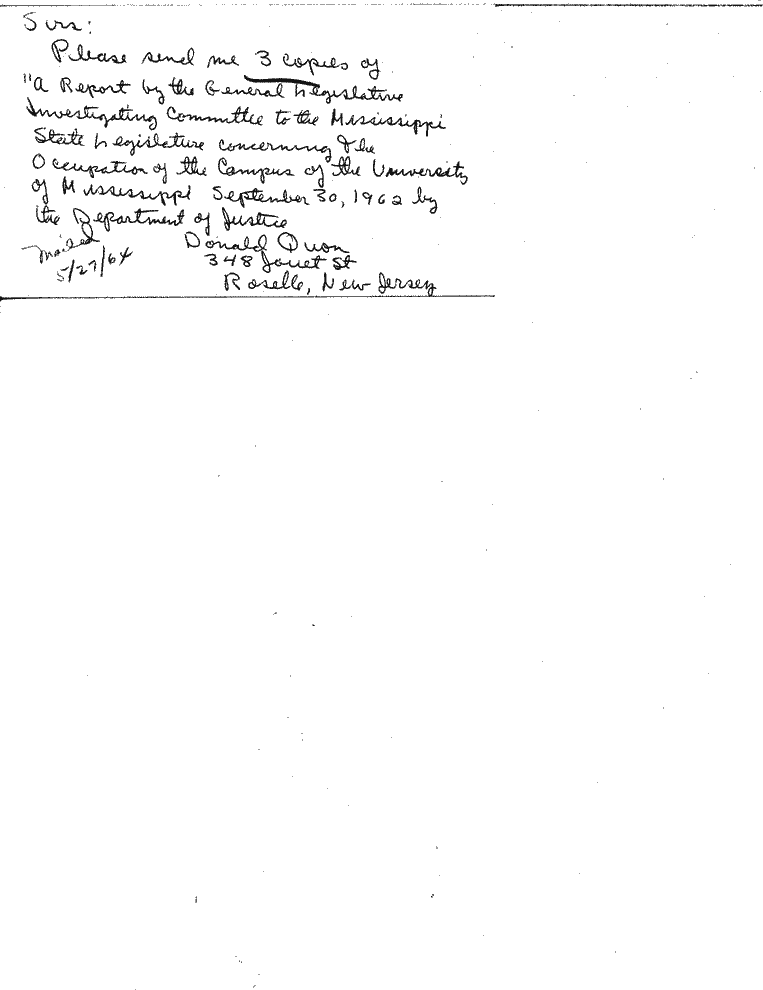 Sirs:
Please send me 3 copies of
"A Report by the General Legislative
Investigating Committee to the Mississippi
State Legislature concerning the
Occupation of the Campus of the University
of Mississippi September 30, 1962 by
the Department of Justice
Mailed
5/27/64
Donald Quon
348 Jouet St
Roselle, New Jersey